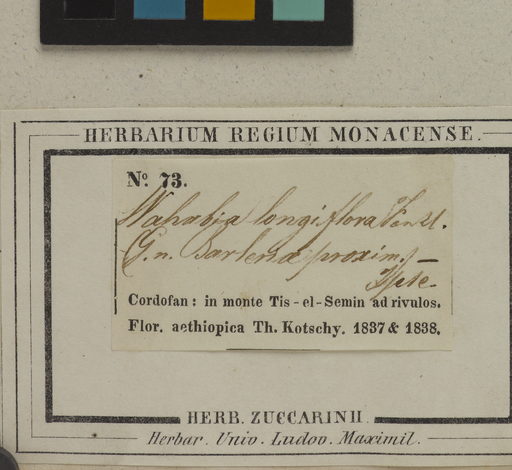 HERBARIUM REGIUM MONACENSE.
Nº 73.
Wahabia longiflora Fenzl.
G. n. Barleria proxim.
Cordofan: in monte Tis-el-Semin ad rivulos.
Flor. aethiopica Th. Kotschy. 1837 & 1838.
HERB. ZUCCARINII
Herbar. Univ. Ludov. Maximil.